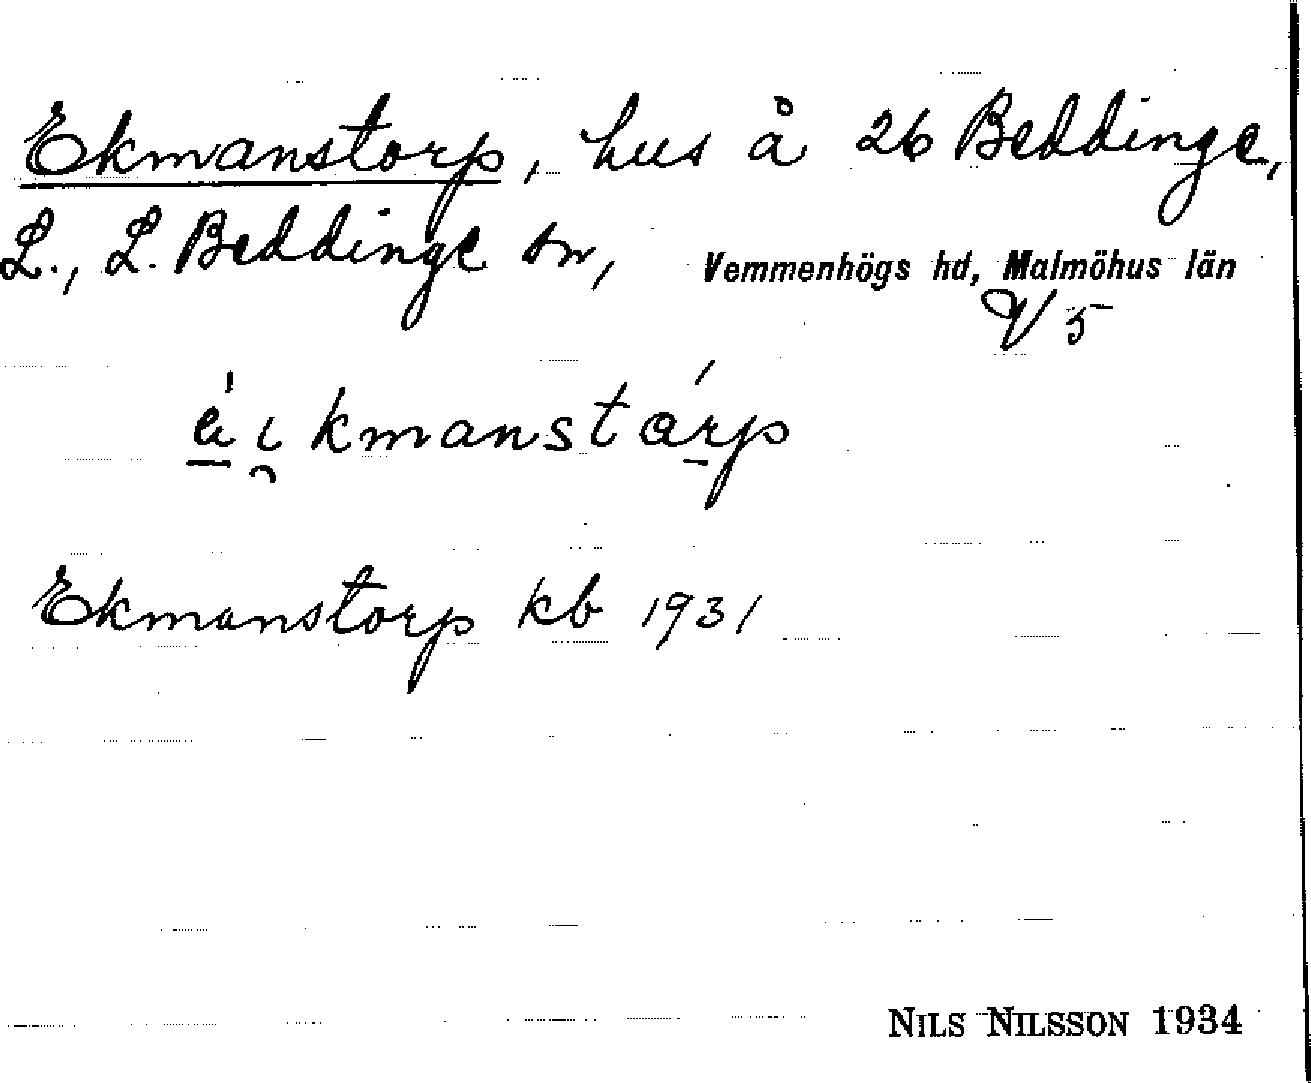 Ekmanstorp, hus å 26 Beddinge,
L., L. Beddinge sn, Vemmenhögs hd, Malmöhus län
V 5
kmanstarp
Ekmanstorp kb 1931
NILS NILSSON 1934